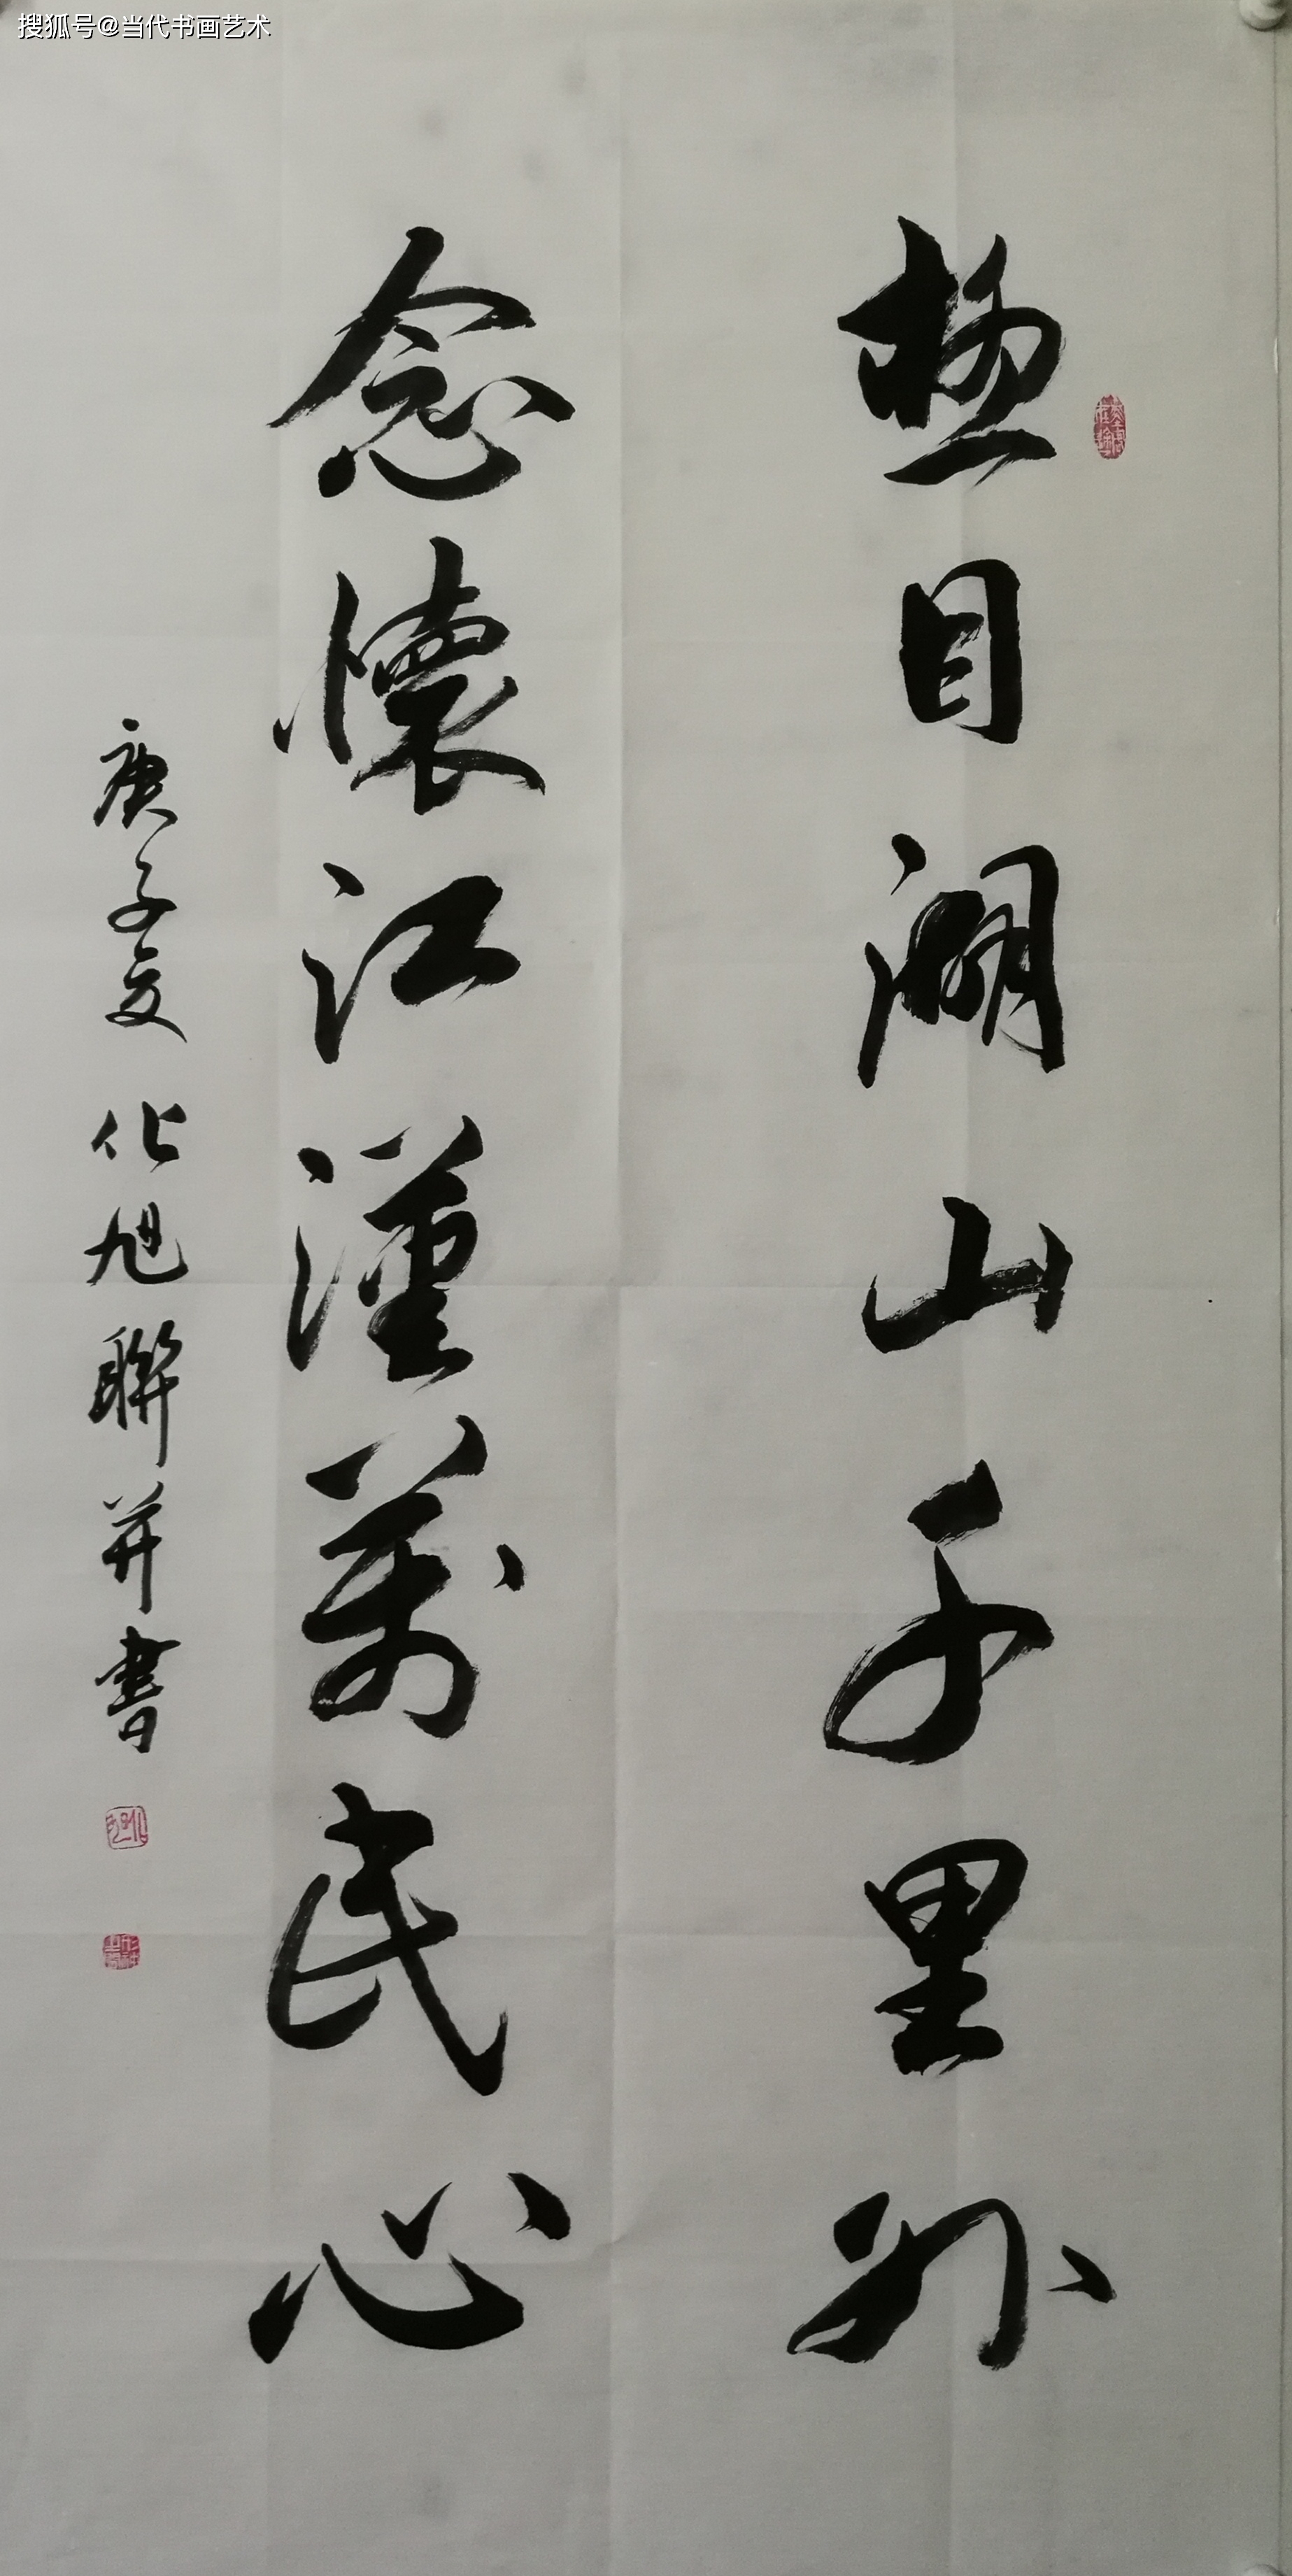 搜狐号@当代书画艺术
極目湖山千里外
念懷江漢萬民心
庚子夏 化旭聯并書